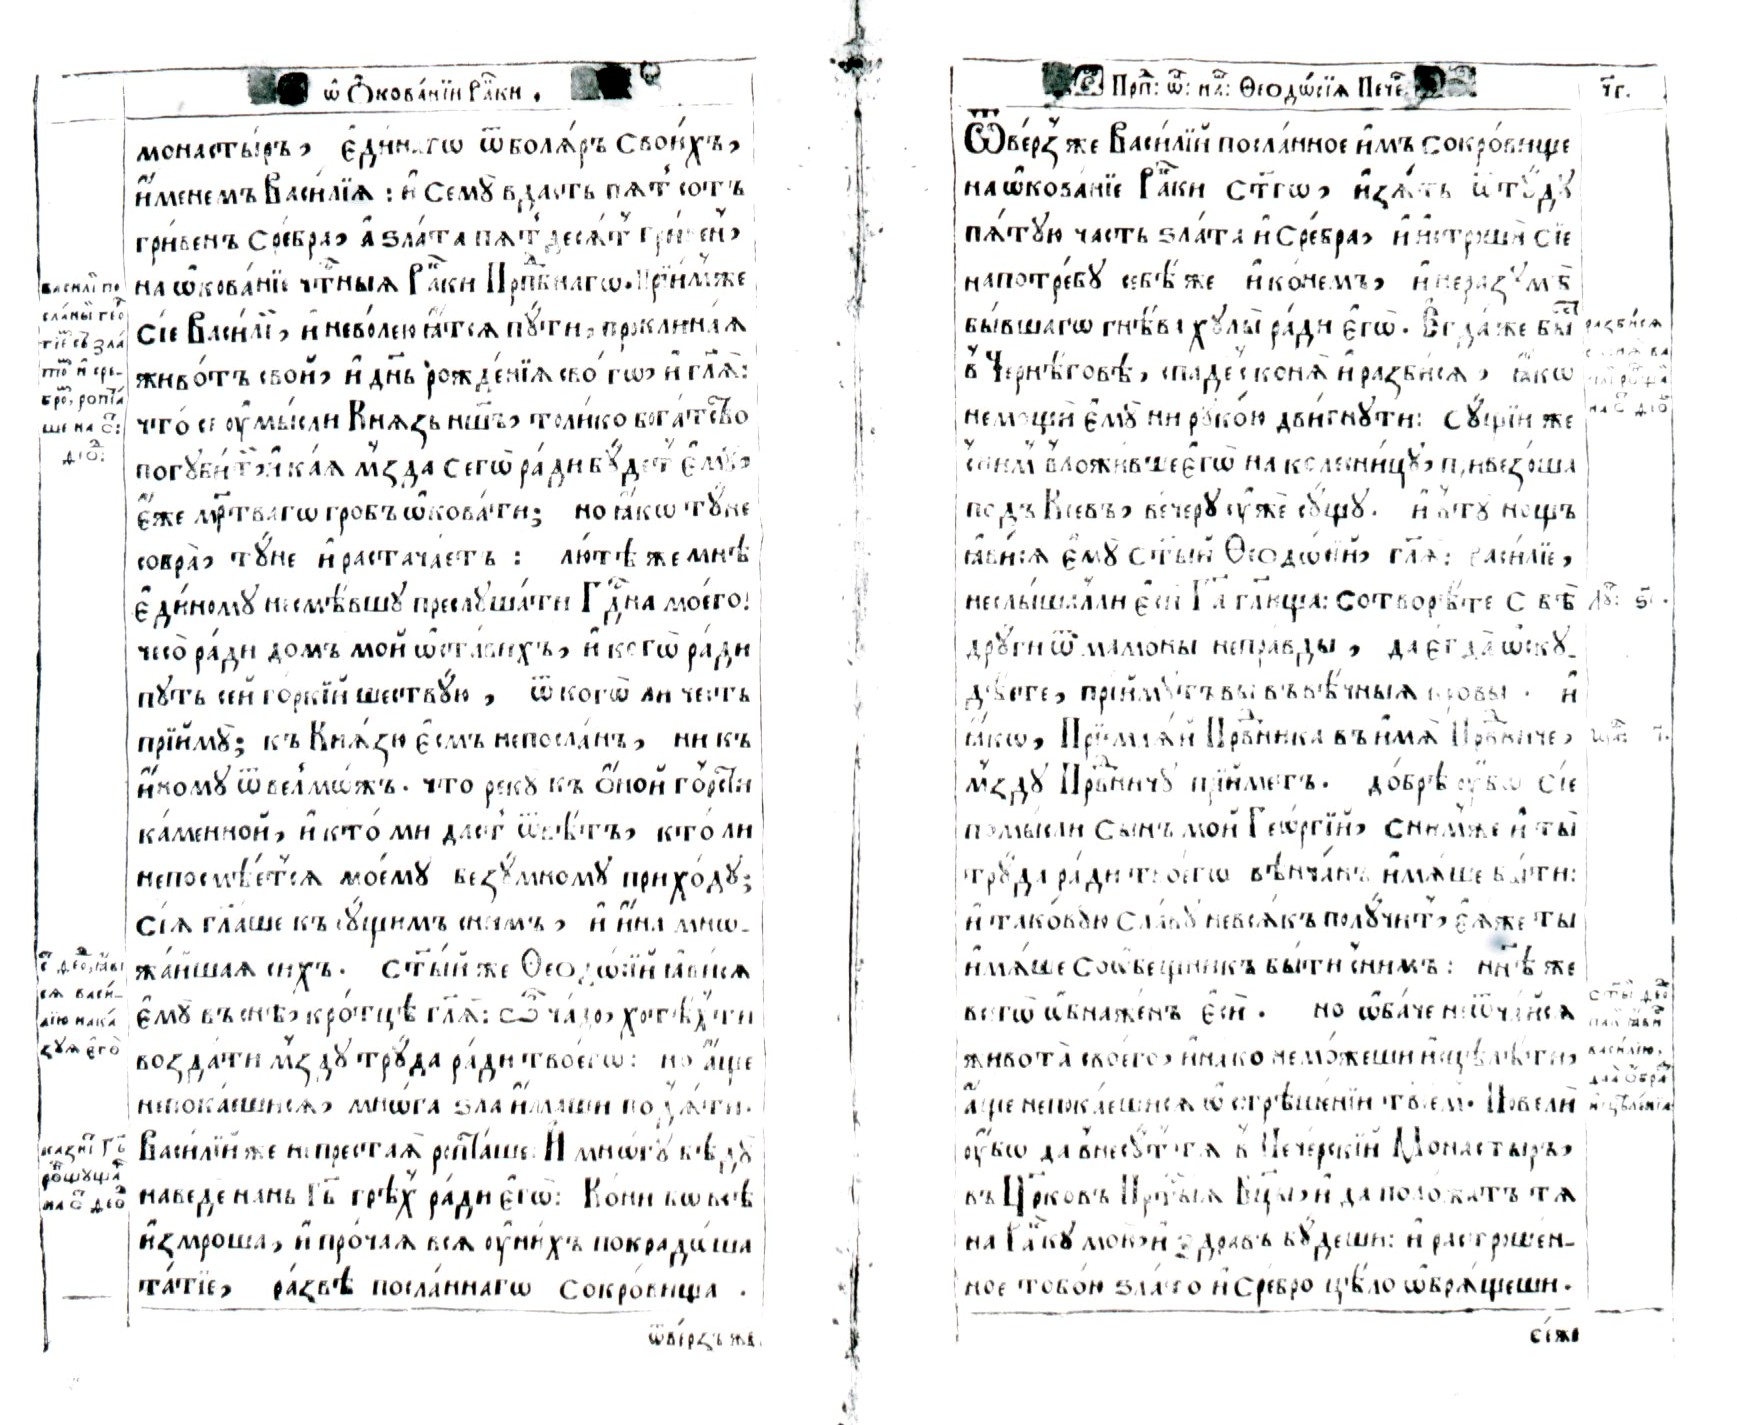 ѡ҆ Ѻ҆кова́нїи Ра́ки .
монасты́ръ , є҆ди́нагѡ ѿ болѧ́ръ Свои́хъ ,
и҆́менемъ Васи́лїѧ : и҆ Семꙋ̀ вда́сть пѧ́т сотъ
гри́венъ Сребра̀ , а҆ ѕла́та пѧ́т десѧ́т гри́вен ,
на ѡ҆кова́нїе чтⷭ҇ныѧ Ра́ки Прпⷣбнагѡ . Прїи́мъ же
Сїѐ Васи́лїй , и҆ нево́лею ꙗ҆́тсѧ пꙋтѝ , проклина́ѧ
живо́тъ сво́й , и҆ дн҃ь рожде́нїѧ своегѡ̀ , и҆ гл҃ѧ :
что́ се ᲂу҆мы́сли Кнѧ́зь нш҃ъ , толи́ко бога́тство
погꙋби́ти , и҆ ка́ѧ мздà сегѡ̀ ра́ди бꙋ́детъ є҆мꙋ̀ ,
є҆́же мр҃твагѡ гро́бъ ѡ҆кова́ти ; но ꙗ҆́кѡ тꙋ́не
собра̀ , тꙋ́не и҆ растача́етъ : лю́тѣ же мнѣ̀
є҆ди́номꙋ несмѣ́вшꙋ преслꙋ́шати Гдⷭ҇на моего̀ :
чесо̀ ра́ди до́мъ мо́й ѡ҆ста́вихъ , и҆ когѡ̀ ра́ди
пꙋ́ть се́й го́ркїй ше́ствꙋю , ѿ когѡ̀ ли че́сть
прїймꙋ̀ ; къ Кнѧ́зю є҆́смь непо́сланъ , ни къ
и҆но́мꙋ ѿ велмѡ́жъ . что рекꙋ̀ къ ѻ҆́ной го́рсти
ка́менной , и҆ кто́ ми да́стъ ѿвѣ́тъ , кто́ ли
непосмѣе́тсѧ моемꙋ̀ безꙋ́мномꙋ прихо́дꙋ ;
Сїѧ̑ гл҃аше къ сꙋ́щимъ сни́мъ , и҆ и҆́на мнѡ-
жа́йшаѧ си́хъ . Ст҃ы́й же Ѳеодѡ́сїй ꙗ҆ви́сѧ
є҆мꙋ̀ въ снѣ̀ , кро́тцѣ гл҃ѧ : ѽ ча́до , хотѣ́хъ ти
возда́ти мздꙋ̀ трꙋда̀ ра́ди твоегѡ̀ : но а҆́ще
непока́ешисѧ , мнѡ́га ѕла̀ и҆́маши под̾ѧ́ти .
Васи́лїй же непреста́ѧ ропта́ше . И҆ мнѡ́гꙋ бѣдꙋ̀
наведѐ нань Гдⷭ҇ь грѣ̑хъ ра́ди є҆гѡ̀ : Ко́ни бо всѣ̀
и҆змро́ша , и҆ про́чаѧ всѧ̑ ᲂу҆ ни́хъ покрадо́ша
та́тїе , ра́звѣ посла́ннагѡ Сокро́вища .
ѿве́рзъ же
Васи́лїй по
сланы̀й Геѡ
тїе съ ѕла
томъ и҆ сре-
бро , ропта́
ше на С҃ :
Ѳео :
С҃ Ѳео ꙗ҆ви
сѧ Васи-
лїю нака
зꙋѧ є҆го̀
казни́ Гдⷭ҇ь
ро́пщꙋща
на С҃ Ѳео
Прпⷣ : ѿ : на : Ѳеодѡ́сїѧ Пече .
чг .
Ѿве́рзъ же Васи́лїй посла́нное и҆́мъ сокро́вище
на ѡ҆кова́нїе Ра́ки ст҃гѡ , и҆ з̾ѧ́тъ ѿтꙋ́дꙋ
пѧ́тꙋю часть ѕла́та и҆ Сребра̀ , и҆ и҆стощѝ сїѐ
на потре́бꙋ себѣ̀ же и҆ ко́немъ , и҆ неразꙋмѣ̀
бы́вшагѡ гнѣ́ва хꙋлы̀ ра́ди є҆гѡ̀ . Є҆гда́ же бы́сть
в̾ Черни́говѣ , спадѐ с̾ конѧ̀ и҆ разби́сѧ , ꙗ҆́кѡ
немощѝ є҆мꙋ̀ ни рꙋко́ю дви́гнꙋти : Сꙋ́щїи же
сни́мъ вложи́вше є҆гѡ̀ на колесни́цꙋ , привезо́ша
подъ Кїевъ , ве́черꙋ ᲂу҆жѐ сꙋ́щꙋ . и҆ в̾ тꙋ̀ но́щъ
ꙗ҆ви́сѧ є҆мꙋ̀ ст҃ы́й Ѳеодѡ́сїй , гл҃ѧ : Васи́лїе ,
неслы́шалъ ли є҆сѝ Гдⷭ҇а гл҃юща : Сотвори́те Себѣ̀
дрꙋ́ги ѿ мамо́ны непра́вды , да є҆гда̀ ѡ҆скꙋ-
дѣ́ете , прїи́мꙋтъ вы̀ въ вѣ́чныѧ кро́вы . и҆
ꙗ҆́кѡ , Прїе́млѧй Првⷣника въ и҆́мѧ Првⷣниче ,
мздꙋ̀ Првⷣничꙋ прїи́метъ . до́брѣ ᲂу҆́бѡ сїѐ
помы́сли Сы́нъ мо́й Геѡ́ргїй , сни́мже и҆ ты̀
трꙋда̀ ра́ди твоегѡ̀ вѣнча́нъ и҆мѧ́ше бы́ти :
и҆ такову́ю Сла́вꙋ невсѧ́къ полꙋ́читъ , є҆ѧ́же ты
и҆мѧ́ше Соѡ҆бе́щникъ бы́ти сни́мъ : нн҃ѣ же
всегѡ̀ ѡ҆бнаже́нъ є҆сѝ . но ѻ҆ба́че неѿча́йсѧ
живота̀ своего̀ , и҆на́ко немо́жеши и҆сцѣлѣ́ти ,
а҆́ще непока́ешисѧ ѡ҆ согрѣше́нїи твое́м . Повелѝ
ᲂу҆́бѡ да внесꙋ́т тѧ в̾ Пече́рскїй Монасты́ръ ,
въ Цр҃ковъ Прчⷭ҇тыѧ Бцⷣы , и҆ да поло́жатъ тѧ
на Ра́кꙋ мою̀ , и҆ здра́въ бꙋ́деши : и҆ растроше́н-
ное тобо́ю ѕла́то и҆ Сребро̀ цѣ́ло ѡ҆брѧ́щеши .
сїѧ́же
разби́сѧ
на С҃ Ѳео
лꙋ : ѕ҃ı .
ма : і҃ .
Ст҃ы́й Ѳео
па́ки ꙗ҆ви
васи́лїю ,